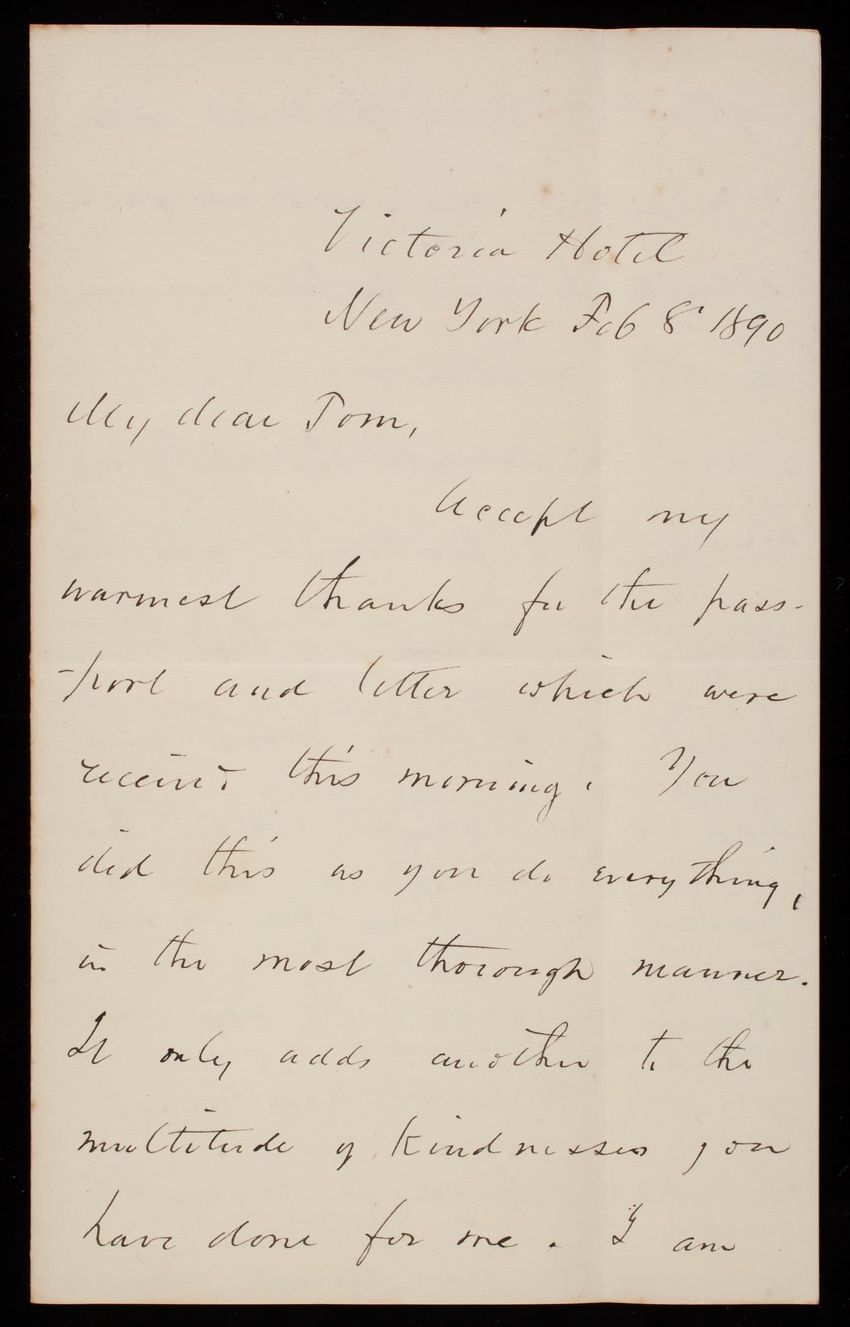 Victoria Hotel
New York Feb 8' 1890
My dear Tom,
Accept my
warmest thanks for the pass-
-port and letter which were
received this morning. You
did this as you do everything,
in the most thorough manner.
It only adds another to the
multitude of kindnesses you
have done for me. I am